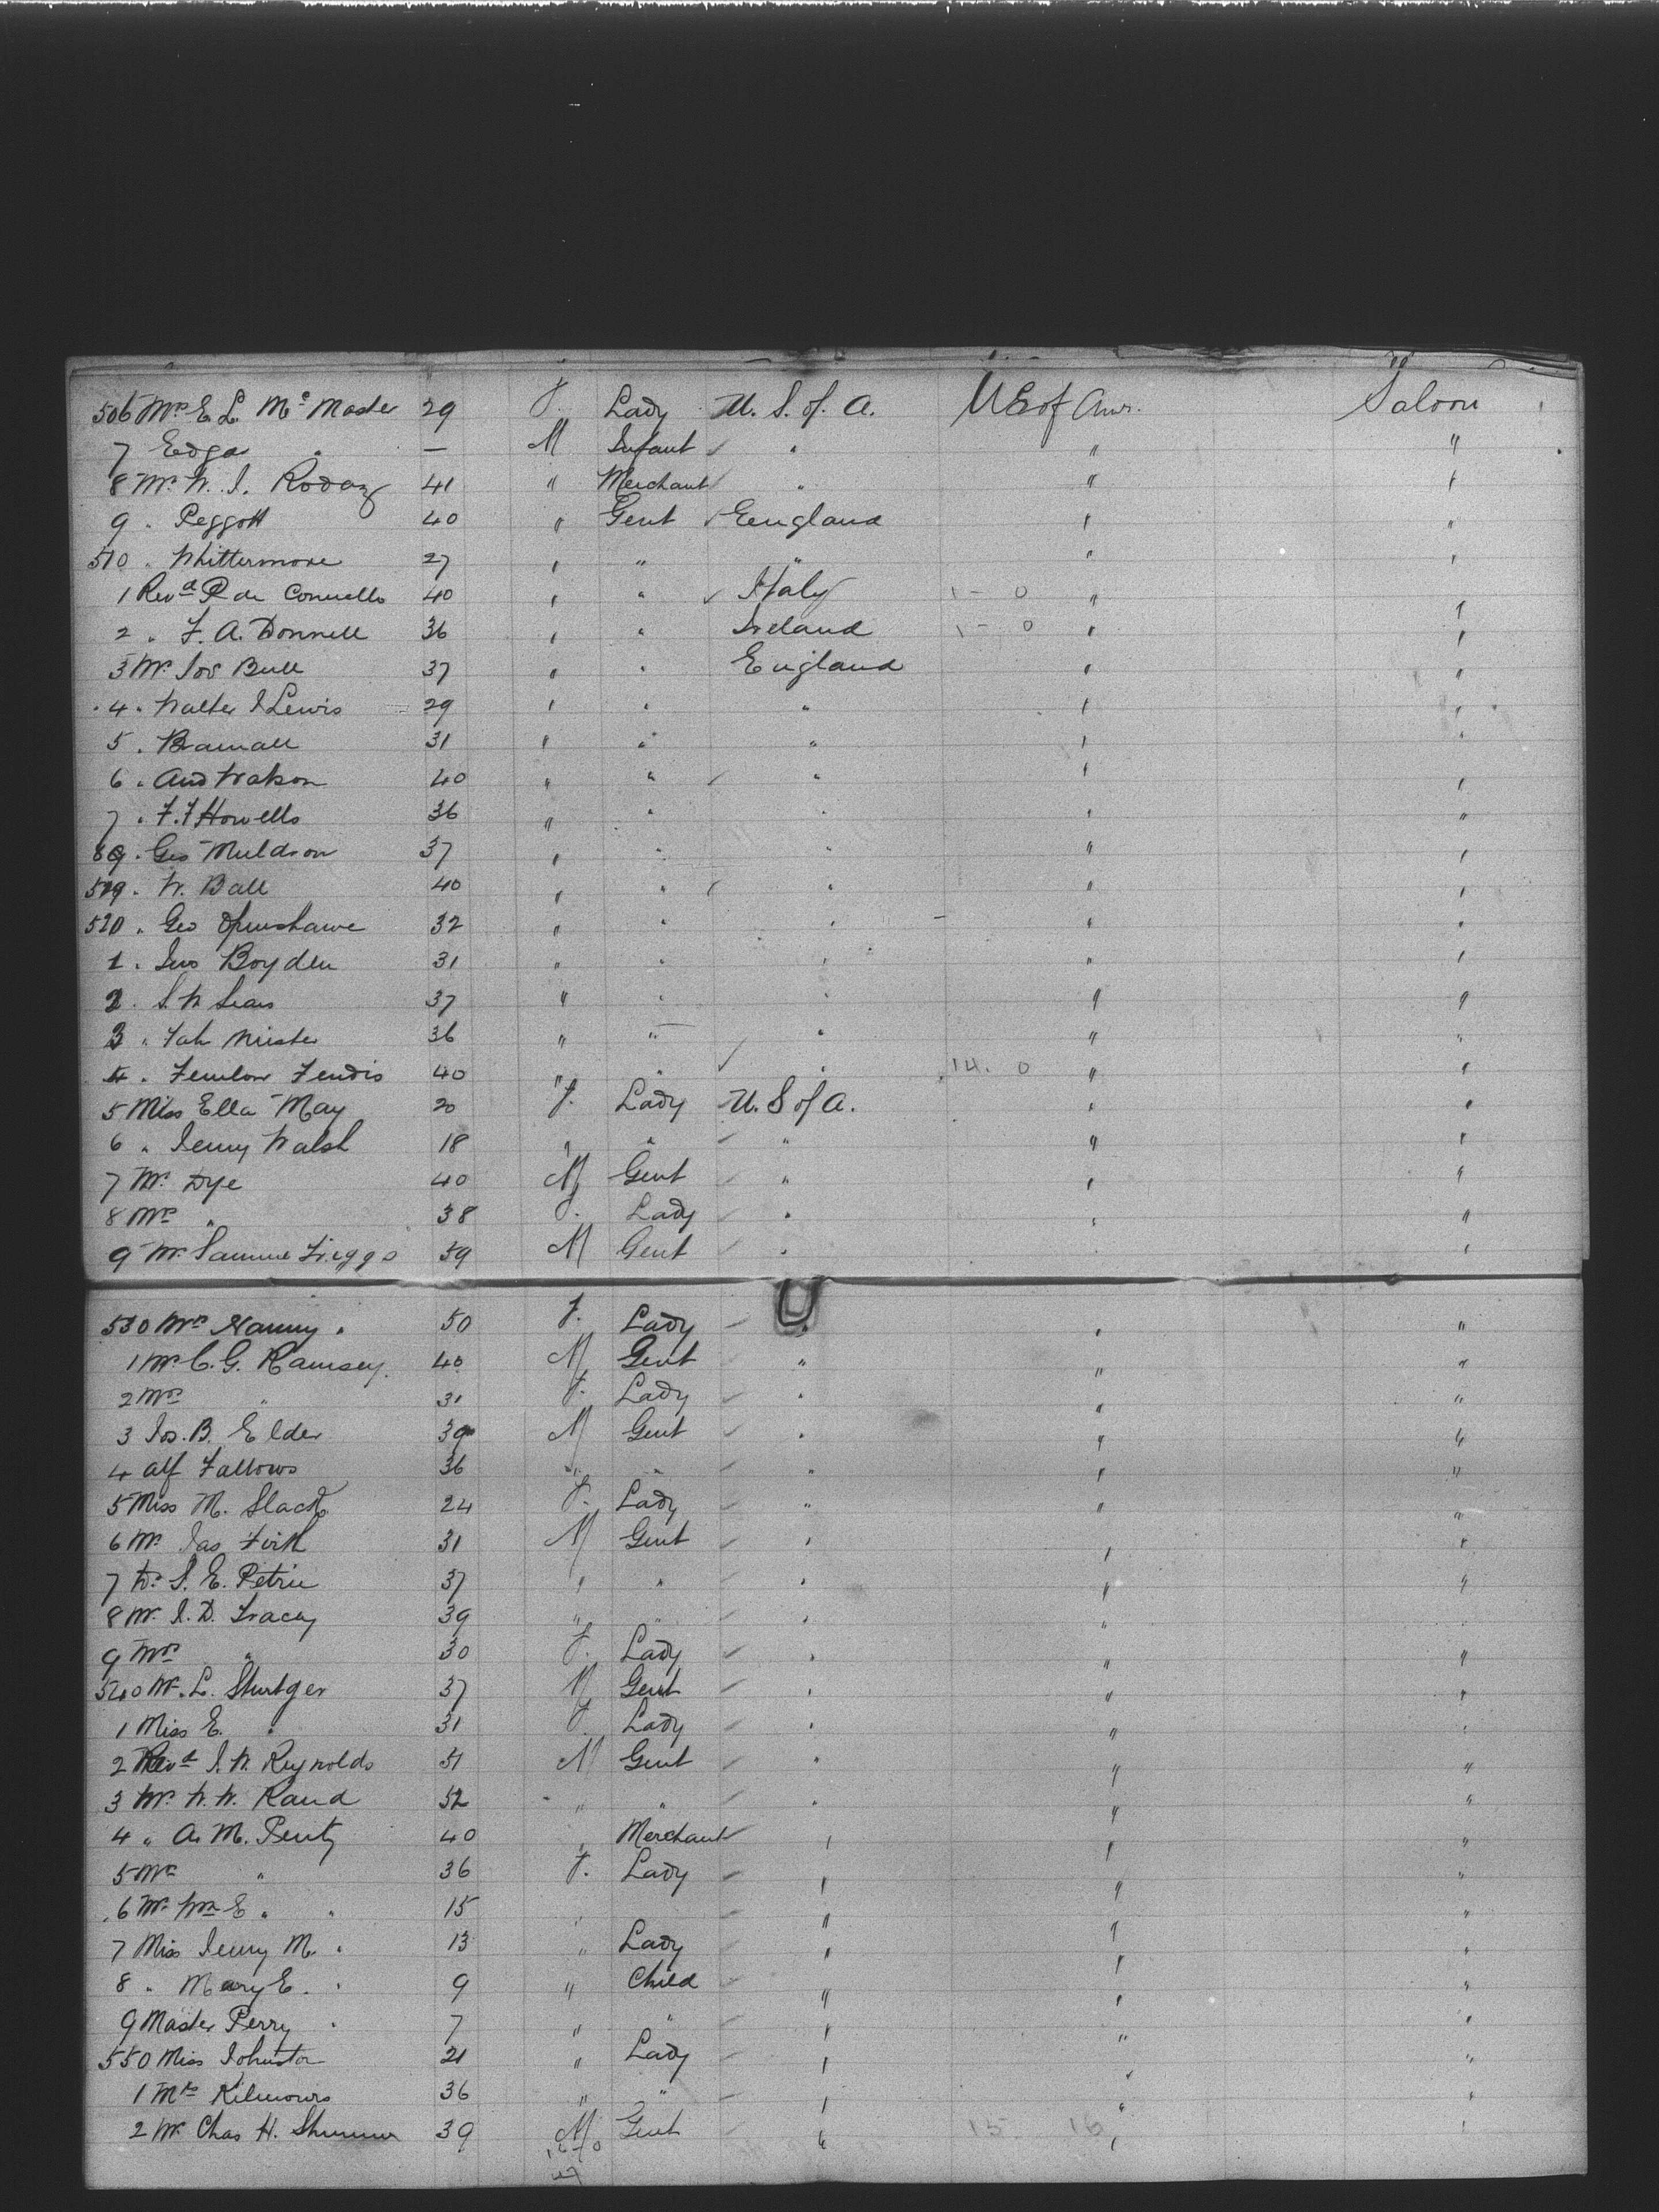 506 Mrs E. L. McMaster 29 F. Lady U. S. of. A. U S of Amr. Saloon
7 Edgar " — M Infant " " "
8 Mr. W. J. 41 " Merchant " " "
9 " Peggott 40 " Gent England " "
510 " Whittermore 27 " " " " "
1 Revd P de 40 " " Italy 1 - 0 " "
2 " F. A. Donnell 36 " " Ireland 1 - 0 " "
3 Mr. Jos Bull 37 " " England " "
4 " Walter J Lewis 29 " " " " "
5 " Bramall 31 " " " " "
6 " And Watson 40 " " " " "
7 " F. J Howells 36 " " " " "
8 " Geo Muldron 37 " " " " "
519 " W. Ball 40 " " " " "
520 " Geo 32 " " " " "
1 " Jno Boyden 31 " " " " "
2 " S. W Sears 37 " " " " "
3 " 36 " " " " "
4 " 40 " " " 14. 0 " "
5 Miss Ella May 20 F. Lady U. S of A. " "
6 " Jenny Walsh 18 " " " " "
7 Mr. Dye 40 M Gent " " "
8 Mrs " 38 F. Lady " " "
9 Mr. 59 M Gent " " "
530 Mrs Nanny " 50 F. Lady " " "
1 Mr. C. G. Ramsey. 40 M Gent " " "
2 Mrs " 31 F. Lady " " "
3 Jos. B. Elder 39 M Gent " " "
4 Alf Fallows 36 " " " " "
5 Miss M. Slack 24 F. Lady " " "
6 Mr. Jas Firth 31 M Gent " " "
7 Dr. S. E. Petrie 37 " " " " "
8 Mr. J. D. Tracey 39 " " " " "
9 Mrs " 30 F. Lady " " "
540 Mr. L. Shurtger 37 M Gent " " "
1 Miss E. " 31 F. Lady " " "
2 Revd J. W. Reynolds 51 M Gent " " "
3 Mr. W. W. Rand 52 " " " " "
4 " A. M. Pentz 40 " Merchant " " "
5 Mrs " 36 F. Lady " " "
6 Mr. Wm E " " 15 " " " "
7 Miss Jenny M. " 13 " Lady " " "
8 " Mary E. " 9 " Child " " "
9 Master Perry " 7 " " " " "
550 Miss Johnston 21 " Lady " " "
1 Mrs 36 " " " " "
2 Mr. Chas H. 39 M Gent " 15 16 " "